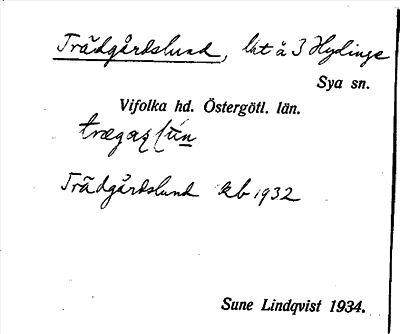 Trädgårdslund, lht å 3 Hydinge
Sya sn.
Vifolka hd. Östergötl. län.
Trädgårdslund kb 1932
Sune Lindqvist 1934.